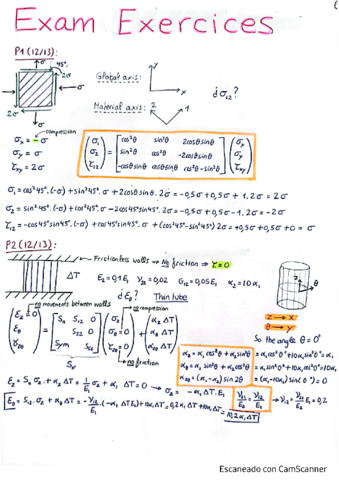 Exam Exercices
P1 (12/13):
σ
45°
2σ
σ
σ
2σ
σ
Global axis:
y
x
Material axis:
2
1
¿σ₁₂?
compression
σx = -σ
σy = σ
τxy = 2σ
(σ₁ σ₂ τ₁₂) = [cos²θ sin²θ 2cosθsinθ
sin²θ cos²θ -2cosθsinθ
-cosθsinθ cosθsinθ cos²θ-sin²θ] (σx σy τxy)
σ₁ = cos²45°·(-σ) + sin²45°·σ + 2cosθsinθ·2σ = -0,5σ + 0,5σ + 1·2σ = 2σ
σ₂ = sin²45°·(-σ) + cos²45°·σ - 2cos45°sin45°·2σ = -0,5σ + 0,5σ - 1·2σ = -2σ
τ₁₂ = -cos45°sin45°·(-σ) + cos45°sin45°·σ + (cos²45°-sin²45°) 2σ = +0,5σ + 0,5σ + 0 = σ
P2 (12/13):
Frictionless walls → No friction → τ = 0
ΔT
E₂ = 0,1E₁ γ₁₂ = 0,02 G₁₂ = 0,05E₁ α₂ = 10α₁
¿εθ? Thin tube
no movements between walls
no compression
θ
z → x
θ → y
(εz = 0 εθ γzθ) = [S₁₁ S₁₂ 0
S₂₂ 0
Sym S₆₆] (σz σθ = 0 τzθ = 0) + (αz ΔT αθ ΔT αzθ ΔT)
no friction
So the angle θ = 0°
αz = α₁cos²θ + α₂sin²θ = α₁cos²0° + 10α₁sin²0° = α₁
αθ = α₁sin²θ + α₂cos²θ = α₁sin²0° + 10α₁cos²0° = 10α₁
αzθ = (α₁-α₂) sin2θ = (α₁-10α₁) sin(0°) = 0
εz = S₁₁σz + αz ΔT = 1/E₁ σz + α₁ ΔT = 0 → σz = -α₁ ΔT·E₁
εθ = S₁₂·σz + αθ ΔT = -γ₁₂/E₁·(-α₁ ΔT E₁) + 10α₁ ΔT = 0,2α₁ ΔT + 10α₁ ΔT =
10,2α₁ ΔT
Escaneado con CamScanner